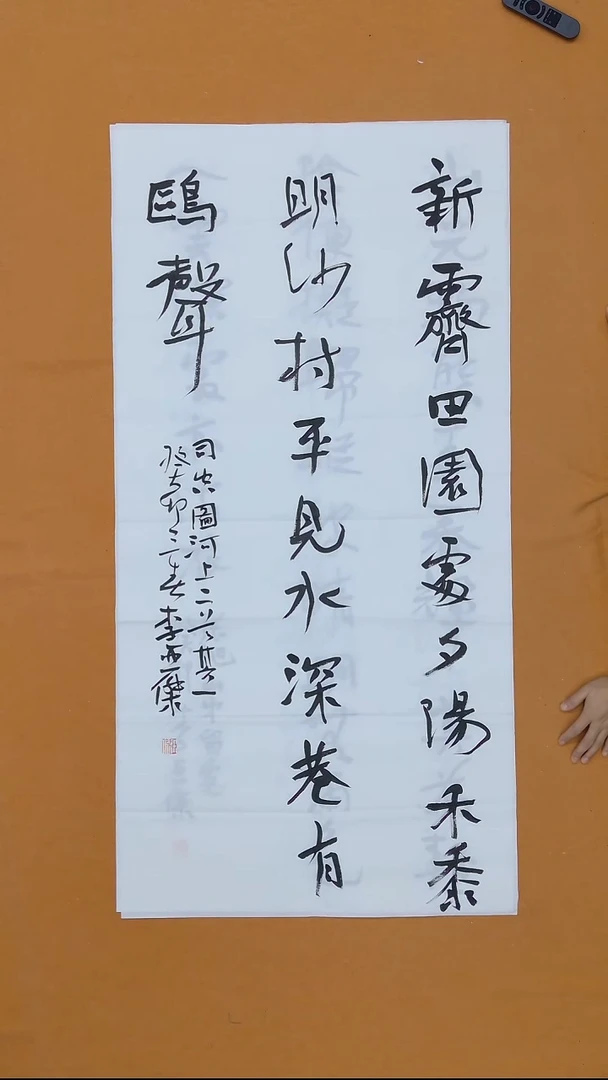 新霽田園處夕陽禾黍
明沙村平見水深巷有
鷗聲
司空圖河上二首其一
卯三春李傑